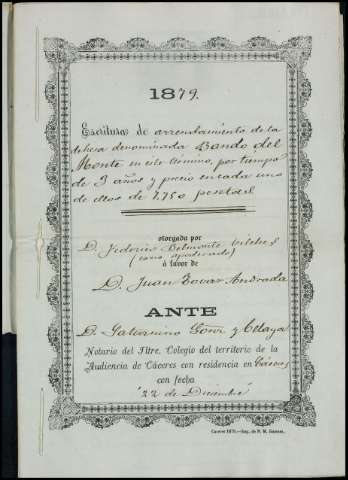 1879.
Escritura de arrendamiento de la
dehesa denominada Bando del
Monte en este término, por tiempo
de 3 años y precio en cada uno
de ellos de 7,750 pesetas
otorgada por
D. Federico Belmonte Vilches
(como apoderado)
á favor de
D. Juan Tovar Andrada
ANTE
D. Saturnino y Celaya
Notario del Iltre. Colegio del territorio de la
Audiencia de Cáceres con residencia en Cáceres
con fecha
22 de Diciembre
Caceres 1879.—Imp. de N. M. Jimenez.